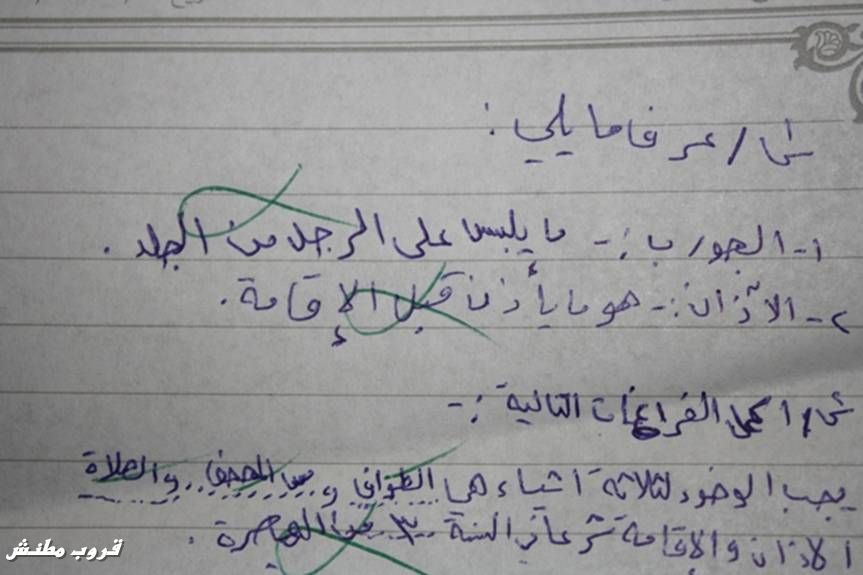 س/ عرفا ما يلي :
١- الجورب :- ما يلبس على الرجل من الجلد .
٢- الآذان :- هو ما يأذن قبل الإقامة .
س/ اكمل الفراغات التالية :-
يجب الوضوء لثلاثة اشياء هي الطواف و مس المصحف والصلاة
الاذان والإقامة شرعا في السنة ٣ من الهجرة .
قروب مطنش